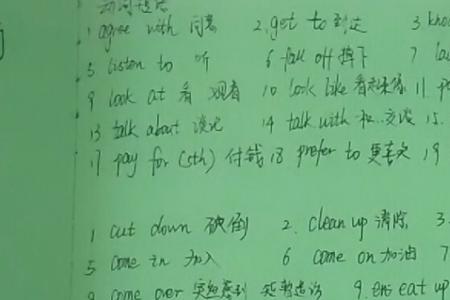 动词短语
1 agree with 同意 2.get to 到达 3 know
5 listen to 听 6 fall off 掉下 7
9 look at 看 观看 10 look like 看起来像 11. p
13 talk about 谈论 14 talk with 和..交谈 15.
17 pay for (sth) 付钱 18 prefer to 更喜欢 19
1 cut down 砍倒 2. clean up 清除 3.
5 come in 加入 6 come on 加油 7
9 come over 9. eat up